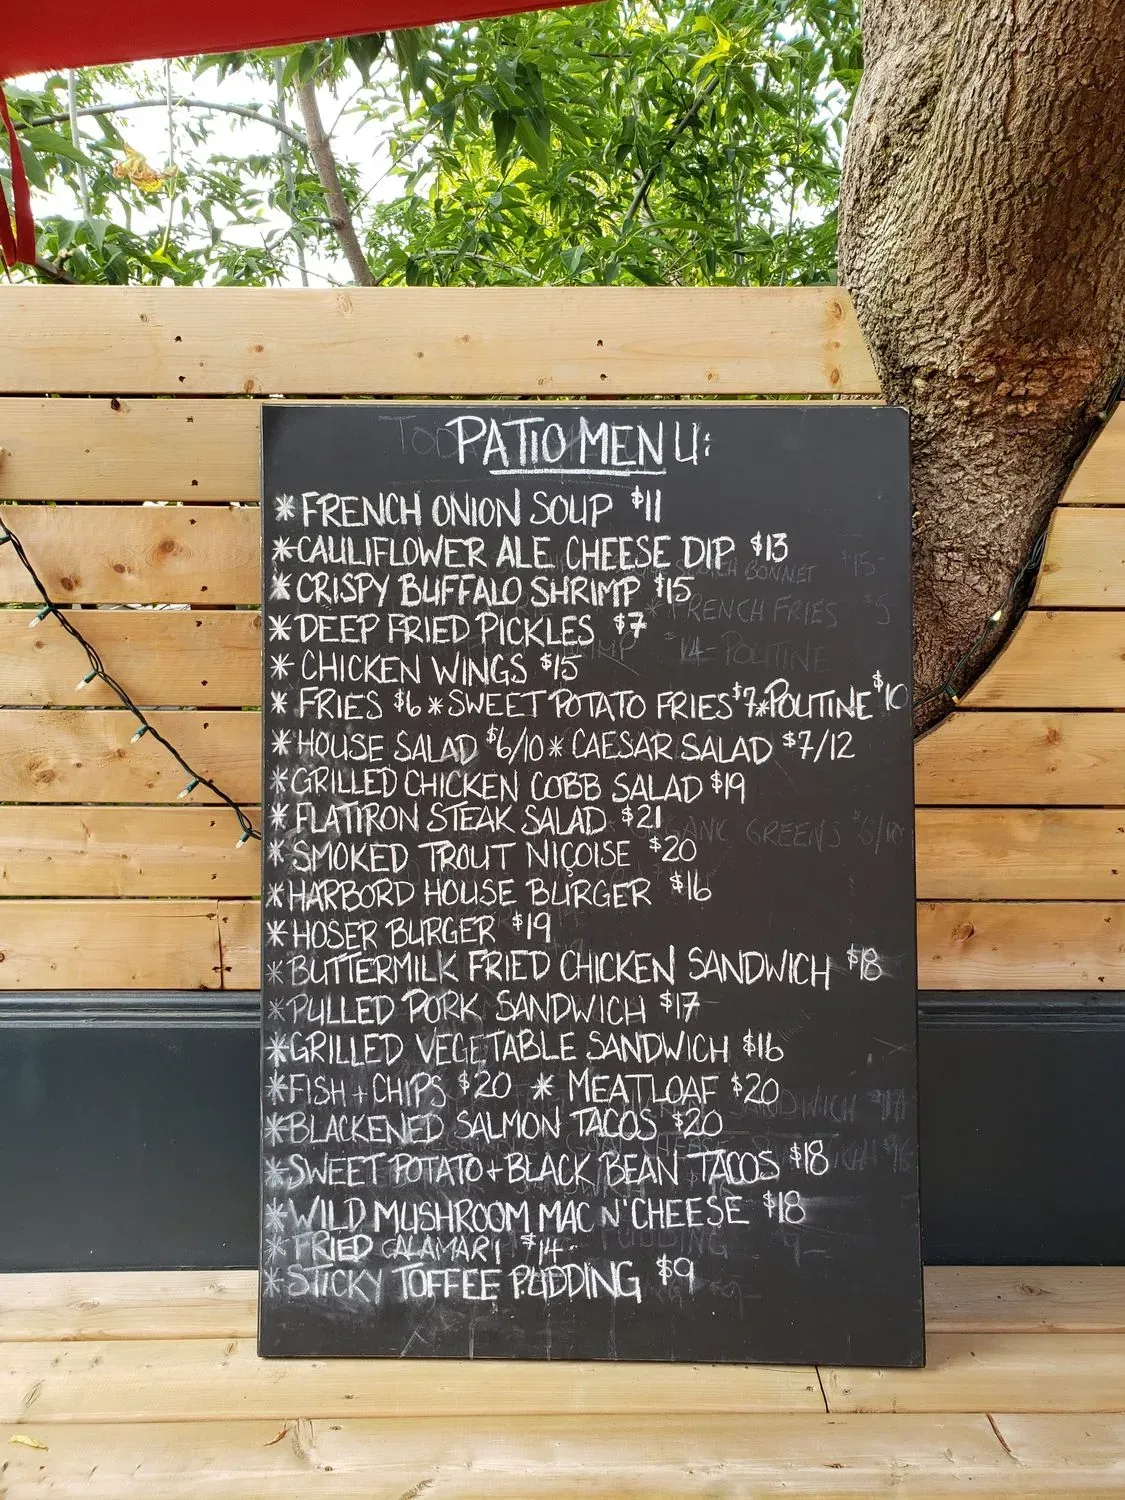 PATIO MENU:
* FRENCH ONION SOUP $11
* CAULIFLOWER ALE CHEESE DIP $13
* CRISPY BUFFALO SHRIMP $15
* DEEP FRIED PICKLES $7
* CHICKEN WINGS $15
* FRIES $6 * SWEET POTATO FRIES $7 * POUTINE $10
* HOUSE SALAD $6/10 * CAESAR SALAD $7/12
* GRILLED CHICKEN COBB SALAD $19
* FLATIRON STEAK SALAD $21
* SMOKED TROUT NIÇOISE $20
* HARBORD HOUSE BURGER $16
* HOSER BURGER $19
* BUTTERMILK FRIED CHICKEN SANDWICH $18
* PULLED PORK SANDWICH $17
* GRILLED VEGETABLE SANDWICH $16
* FISH + CHIPS $20 * MEATLOAF $20
* BLACKENED SALMON TACOS $20
* SWEET POTATO + BLACK BEAN TACOS $18
* WILD MUSHROOM MAC N' CHEESE $18
* FRIED CALAMARI $14-
* STICKY TOFFEE PUDDING $9